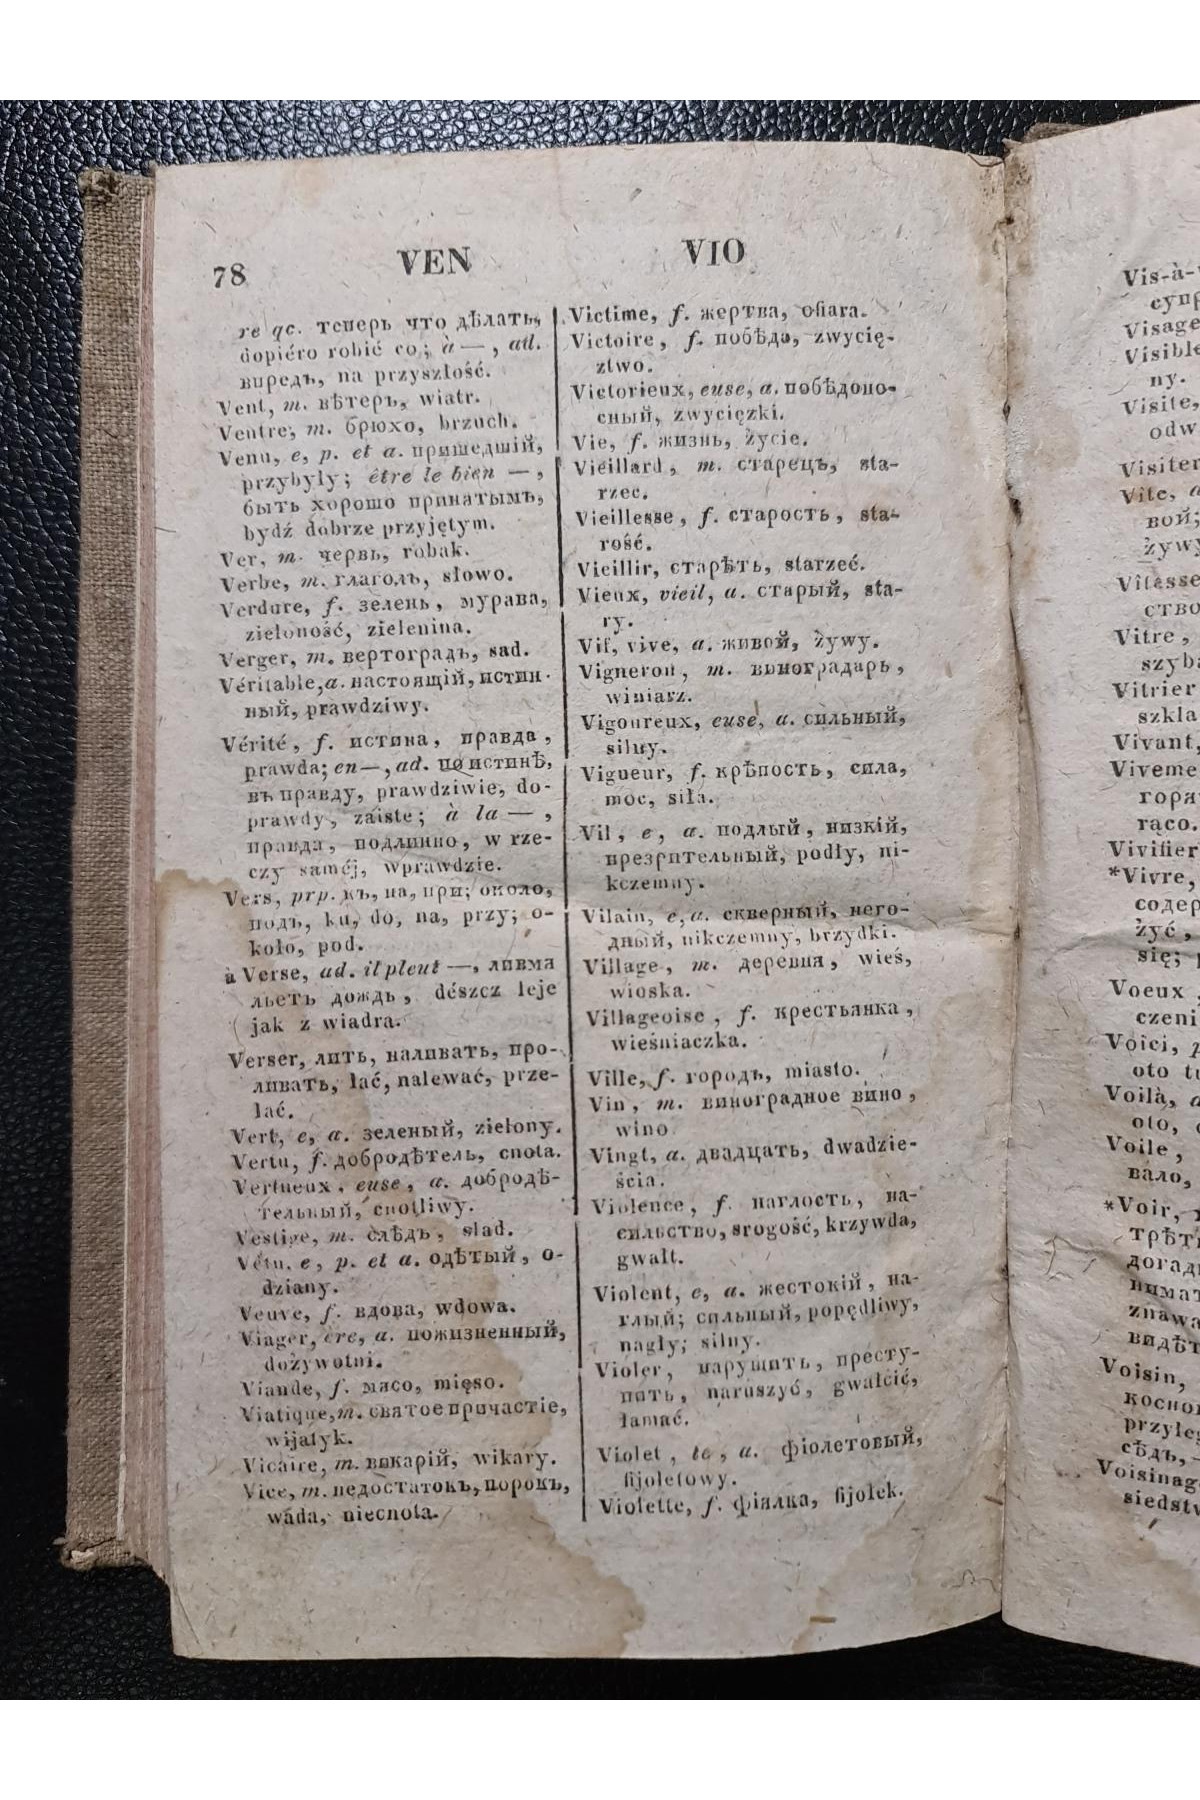 78 VEN VIO
re qc. теперь что дѣлать,
dopiéro robić co; à —, ad.
впредъ, na przyszłość.
Vent, m. вѣтеръ, wiatr.
Ventre, m. брюхо, brzuch.
Venu, e, p. et a. пришедшій,
przybyły; être le bien —,
быть хорошо принятымъ,
bydź dobrze przyjętym.
Ver, m. червь, robak.
Verbe, m. глаголъ, słowo.
Verdure, f. зелень, мурава,
zieloność, zielenina.
Verger, m. вертоградъ, sad.
Véritable, a. настоящій, истин-
ный, prawdziwy.
Vérité, f. истина, правда,
prawda; en —, ad. поистинѣ,
въ правду, prawdziwie, do-
prawdy, zaiste; à la —,
правда, подлинно, w rze-
czy saméj, wprawdzie.
Vers, prp. къ, на, при; около,
подъ, ku, do, na, przy; o-
koło, pod.
à Verse, ad. il pleut —, ливмя
льетъ дождь, dészcz leje
jak z wiadra.
Verser, лить, наливать, про-
ливать, lać, nalewać, prze-
lać.
Vert, e, a. зеленый, zielony.
Vertu, f. добродѣтель, cnota.
Vertueux, euse, a. добродѣ-
тельный, cnotliwy.
Vestige, m. слѣдъ, slad.
Vêtu, e, p. et a. одѣтый, o-
dziany.
Veuve, f. вдова, wdowa.
Viager, ère, a. пожизненный,
dożywotni.
Viande, f. мясо, mięso.
Viatique, m. святое причастіе,
wijatyk.
Vicaire, m. викарій, wikary.
Vice, m. недостатокъ, порокъ,
wada, niecnota.
Victime, f. жертва, ofiara.
Victoire, f. побѣда, zwycię-
ztwo.
Victorieux, euse, a. побѣдоно-
сный, zwycięzki.
Vie, f. жизнь, życie.
Vieillard, m. старецъ, sta-
rzec.
Vieillesse, f. старость, sta-
rość.
Vieillir, старѣть, starzeć.
Vieux, vieil, a. старый, sta-
ry.
Vif, vive, a. живой, żywy.
Vigneron, m. виноградарь,
winiarz.
Vigoureux, euse, a. сильный,
silny.
Vigueur, f. крѣпость, сила,
moc, siła.
Vil, e, a. подлый, низкій,
презрительный, podły, ni-
kczemny.
Vilain, e, a. скверный, него-
дный, nikczemny, brzydki.
Village, m. деревня, wieś,
wioska.
Villageoise, f. крестьянка,
wieśniaczka.
Ville, f. городъ, miasto.
Vin, m. виноградное вино,
wino.
Vingt, a. двадцать, dwadzie-
ścia.
Violence, f. наглость, на-
сильство, srogość, krzywda,
gwałt.
Violent, e, a. жестокій, на-
глый; сильный, popędliwy,
nagły; silny.
Violer, нарушить, престу-
пить, naruszyć, gwałcić,
łamać.
Violet, te, a. фіолетовый,
fijoletowy.
Violette, f. фіялка, fijołek.
Vis-à-
супр
Visage
Visible
ny.
Visite,
odw
Visiter
Vite, a
вой;
żywy
Vitesse
ство
Vitre,
szyba
Vitrier
szkla
Vivant,
Viveme
горя
rąco.
Vivifier
*Vivre,
содер
żyć,
się;
Voeux
czeni
Voici, p
oto tu
Voilà, a
oto,
Voile,
вало,
*Voir,
трѣть
догад
нимат
znawa
видѣт
Voisin,
коснов
przyleg
сѣдъ,
Voisinag
siedstw